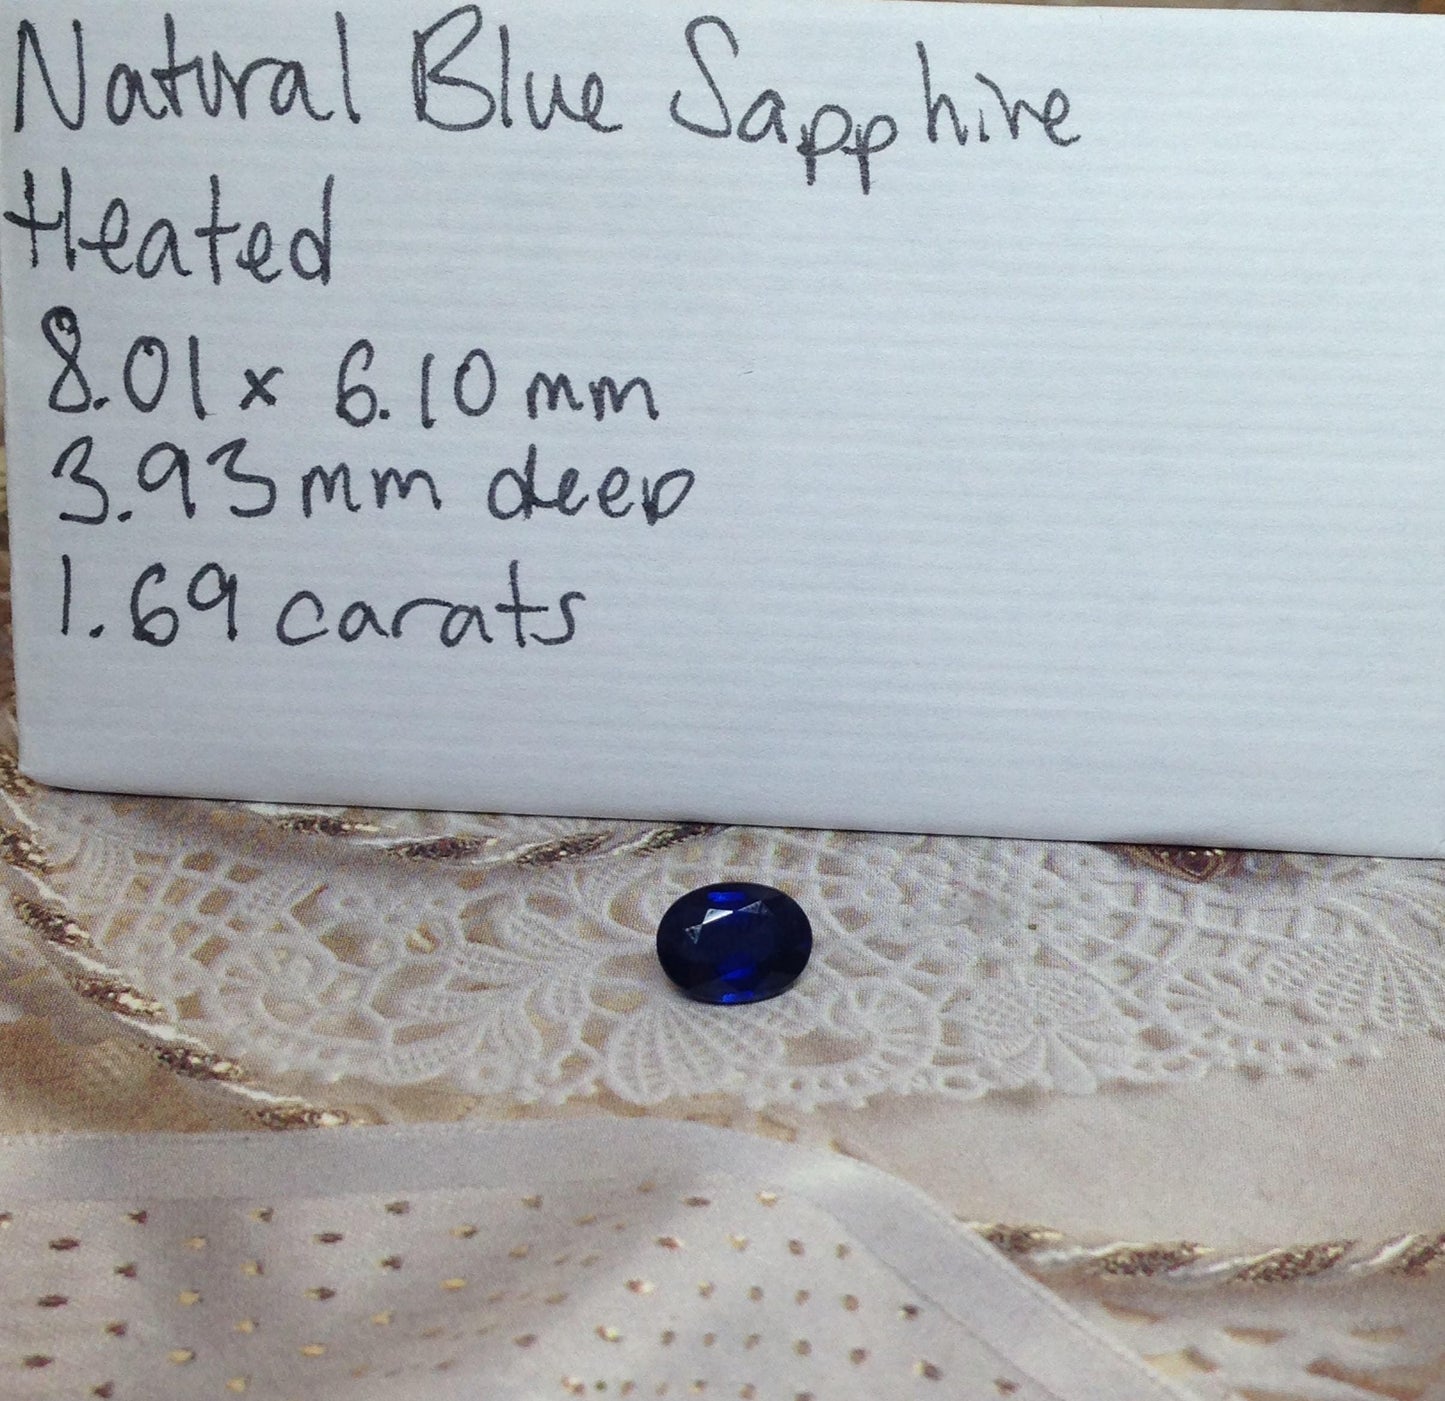 Natural Blue Sapphire
Heated
8.01 x 6.10 mm
3.93 mm deep
1.69 carats